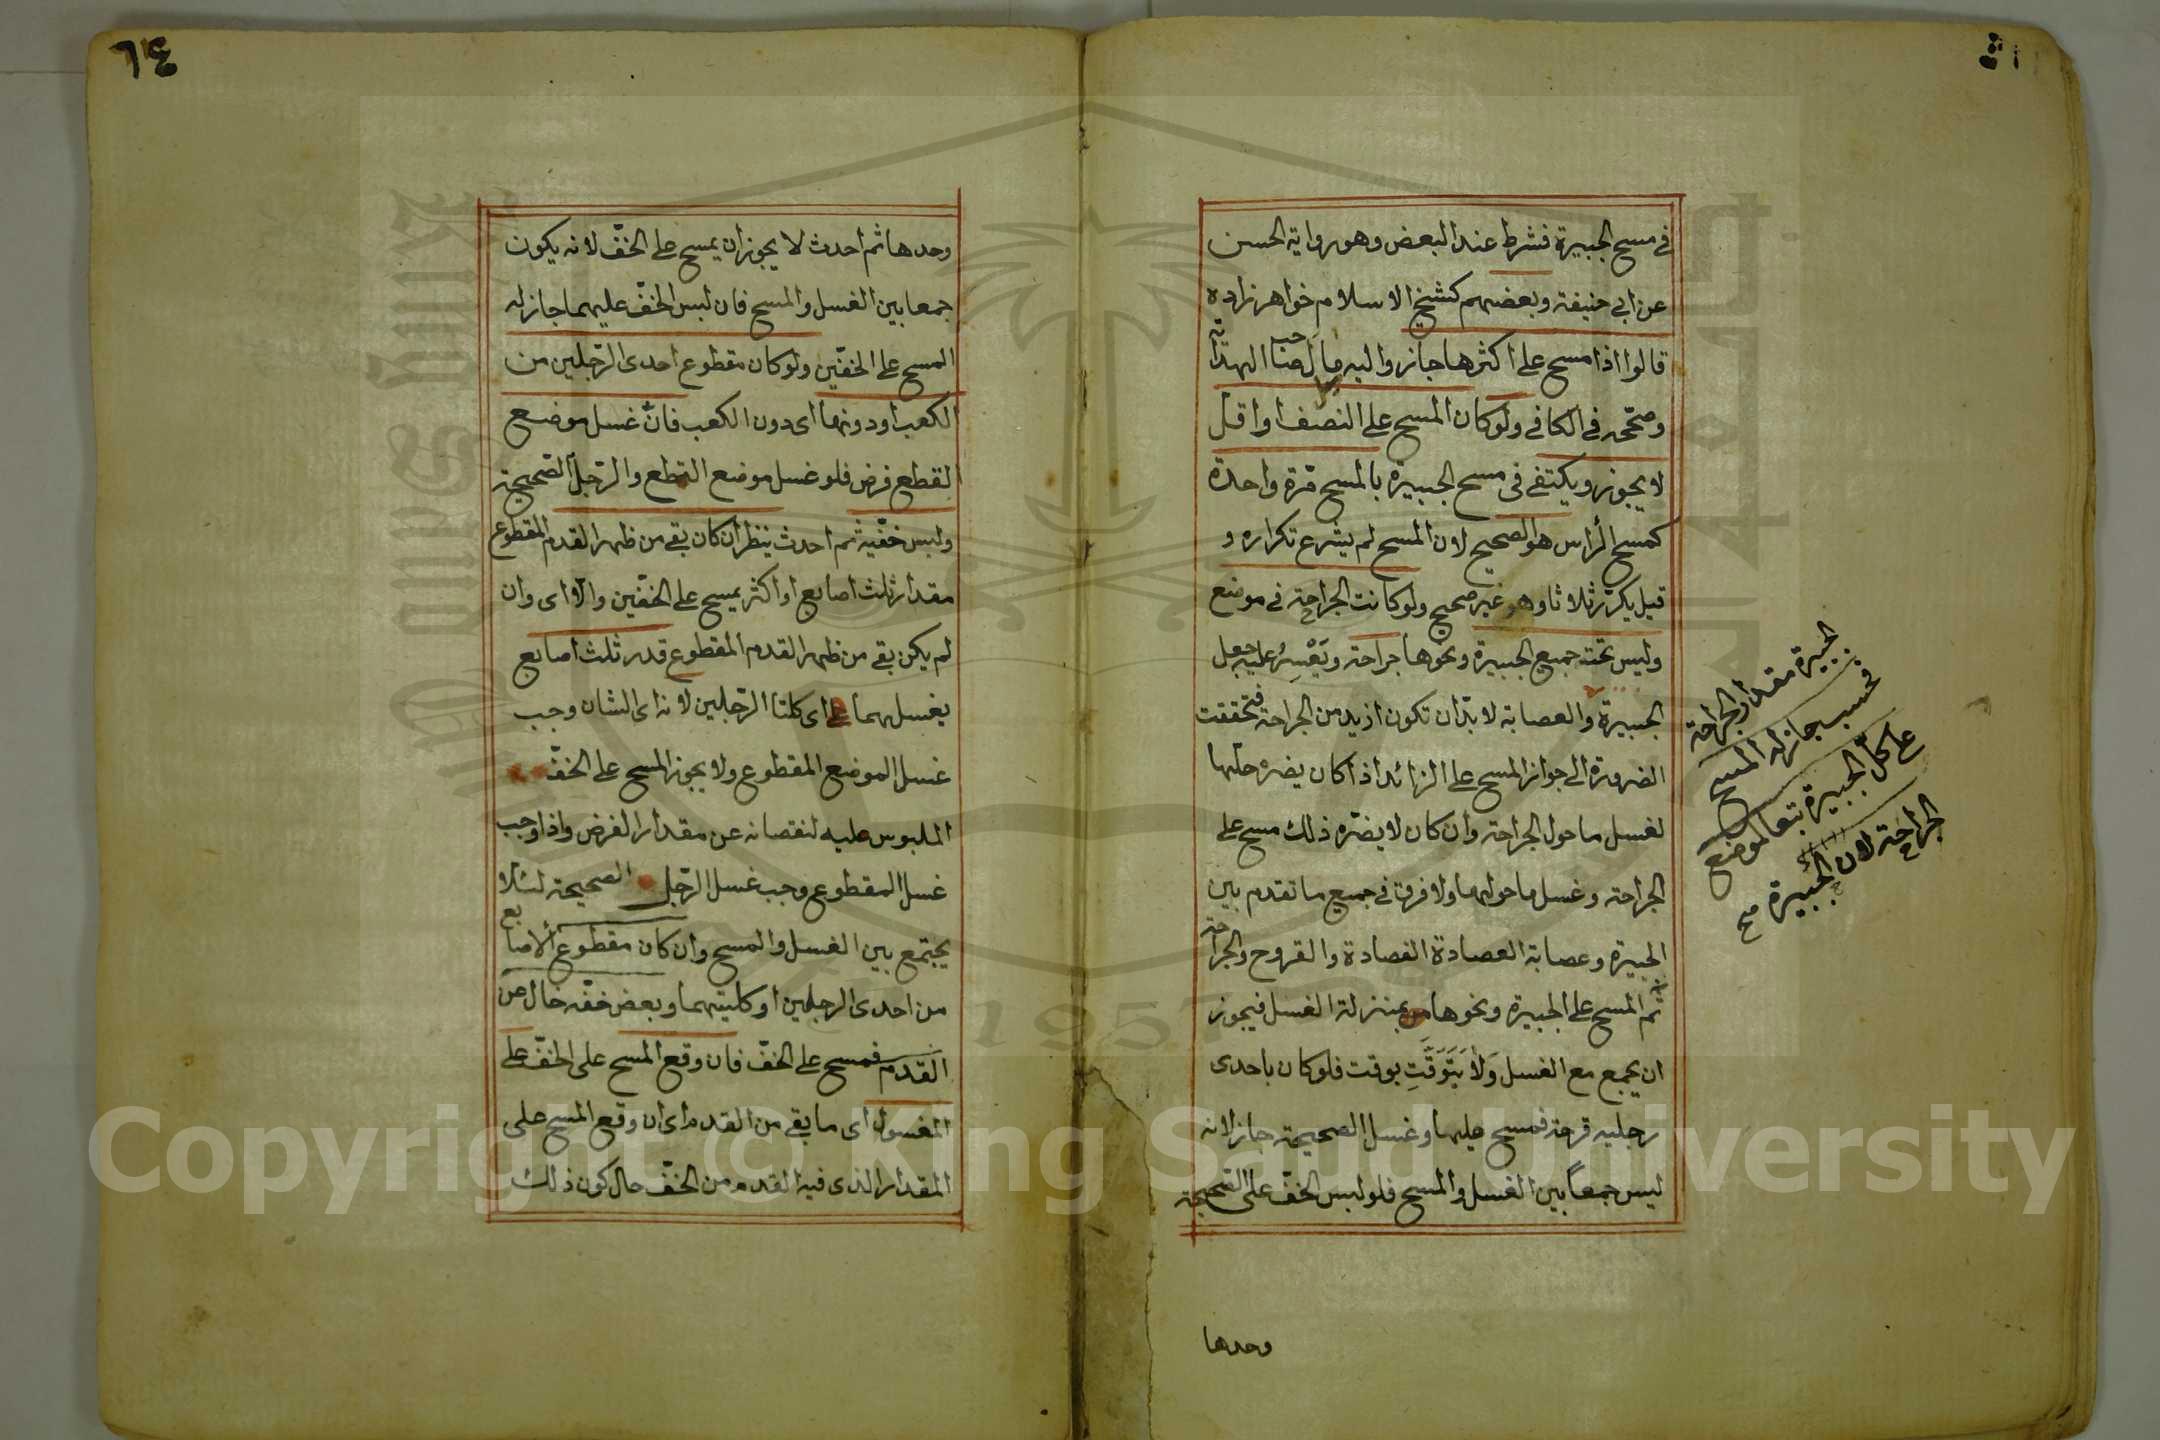 في مسح الجبيرة فشرط عند البعض وهو رواية الحسن
عن ابي حنيفة وبعضهم كشيخ الاسلام خواهر زاده
قالوا اذا مسح على اكثرها جاز واليه مال صاحب الهداية
وصححه في الكافي ولو كان المسح على النصف او اقل
لا يجوز ويكتفى في مسح الجبيرة بالمسح مرة واحدة
كمسح الرأس هو الصحيح لان المسح لم يشرع تكراره و
قيل يكرر ثلاثا وهو غير صحيح ولو كانت الجراحة في موضع
وليس تحته جميع الجبيرة ونحوها جراحة ويعسر عليه جعل
الجبيرة مقدار الجراحة
فحسب جاز له المسح
على كل الجبيرة تبعا لموضع
الجراحة لان الجبيرة صح
الجبيرة والعصابة لا بد ان تكون ازيد من الجراحة فتحققت
الضرورة الى جواز المسح على الزائد اذا كان يضره حلها
لغسل ما حول الجراحة وان كان لا يضره ذلك مسح على
الجراحة وغسل ما حولها ولا فرق في جميع ما تقدم بين
الجبيرة وعصابة العصادة الفصادة والقروح والجراحة
ثم المسح على الجبيرة ونحوها بمنزلة الغسل فيجوز
ان يجمع مع الغسل وَلَا يَتَوَقَّتِ بوقت فلو كان باحدى
رجليه قرحة فمسح عليها وغسل الصحيحة جاز لانه
ليس جمعاً بين الغسل والمسح فلو لبس الخفّ على الصحيحة
وحدها
٦٤
وحدها ثم احدث لا يجوز ان يمسح على الخفّ لانه يكون
جمعا بين الغسل والمسح فان لبس الخفّ عليهما جاز له
المسح على الخفّين ولو كان مقطوع احدى الرّجلين من
الكعب او دونها اى دون الكعب فانّ غسل موضع
القطع فرض فلو غسل موضع القطع والرّجل الصّحيحة
ولبس خفّيه ثم احدث ينظر ان كان بقى من ظهر القدم المقطوع
مقدار ثلث اصابع او اكثر يمسح على الخفّين والّا اى وان
لم يكن بقى من ظهر القدم المقطوع قدر ثلث اصابع
يغسلهما اى كلتا الرّجلين لانه اى الشان وجب
غسل الموضع المقطوع ولا يجوز المسح على الخفّ
الملبوس عليه لنقصانه عن مقدار الفرض واذا وجب
غسل المقطوع وجب غسل الرّجل الصحيحة لئلا
يجتمع بين الغسل والمسح وان كان مقطوع الاصابع
من احدى الرجلين او كليتهما وبعض خفّه خال عن
القدم فمسح على الخفّ فان وقع المسح على الخفّ على
المغسول اى ما بقى من القدم اى ان وقع المسح على
المقدار الذى فيه القدم من الخفّ حال كون ذلك
Copyright © King Saud University
1957